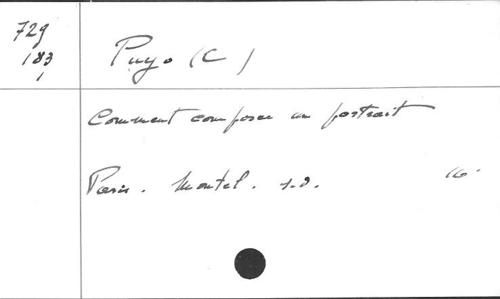 729
183
1
Puyo (C)
Comment composer un portrait
Paris. Montel. s.d. 16.